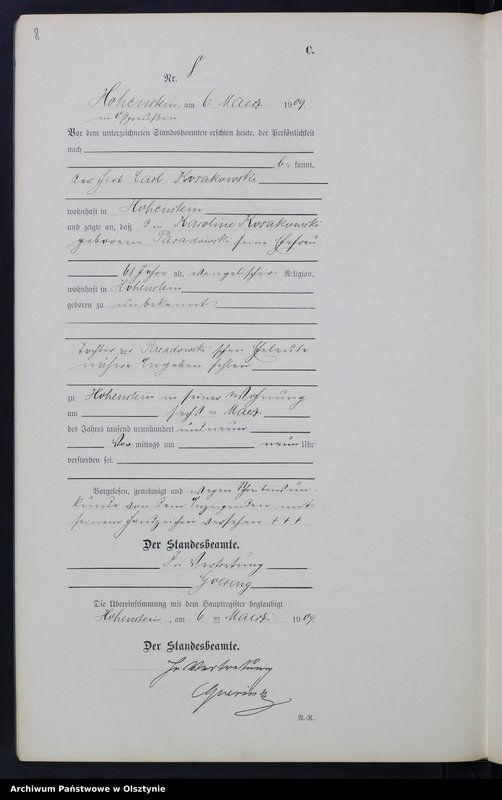 8
C.
Nr. 8
Hohenstein, am 6. Maerz 1909.
in Ostpreußen
Vor dem unterzeichneten Standesbeamten erschien heute, der Persönlichkeit
nach
be kannt,
der Hirt Carl Kosakowski
wohnhaft in Hohenstein
und zeigte an, daß die Karoline Kosakowski
geborene Paradowski seine Ehefrau
61 Jahre alt, evangelischer Religion,
wohnhaft in Hohenstein
geboren zu unbekannt
Tochter der Paradowski'schen Eheleute
nähere Angaben fehlen
zu Hohenstein in seiner Wohnung
am sechsten Maerz
des Jahres tausend neunhundert und neun
Vor mittags um neun Uhr
verstorben sei.
Vorgelesen, genehmigt und wegen Schreibensun-
kunde von dem Anzeigenden mit
seinem Handzeichen versehen + + +
Der Standesbeamte.
In Vertretung
Goering
Die Übereinstimmung mit dem Hauptregister beglaubigt
Hohenstein, am 6 ten Maerz 1909.
Der Standesbeamte.
In Vertretung
Goering
N.-R.
Archiwum Państwowe w Olsztynie